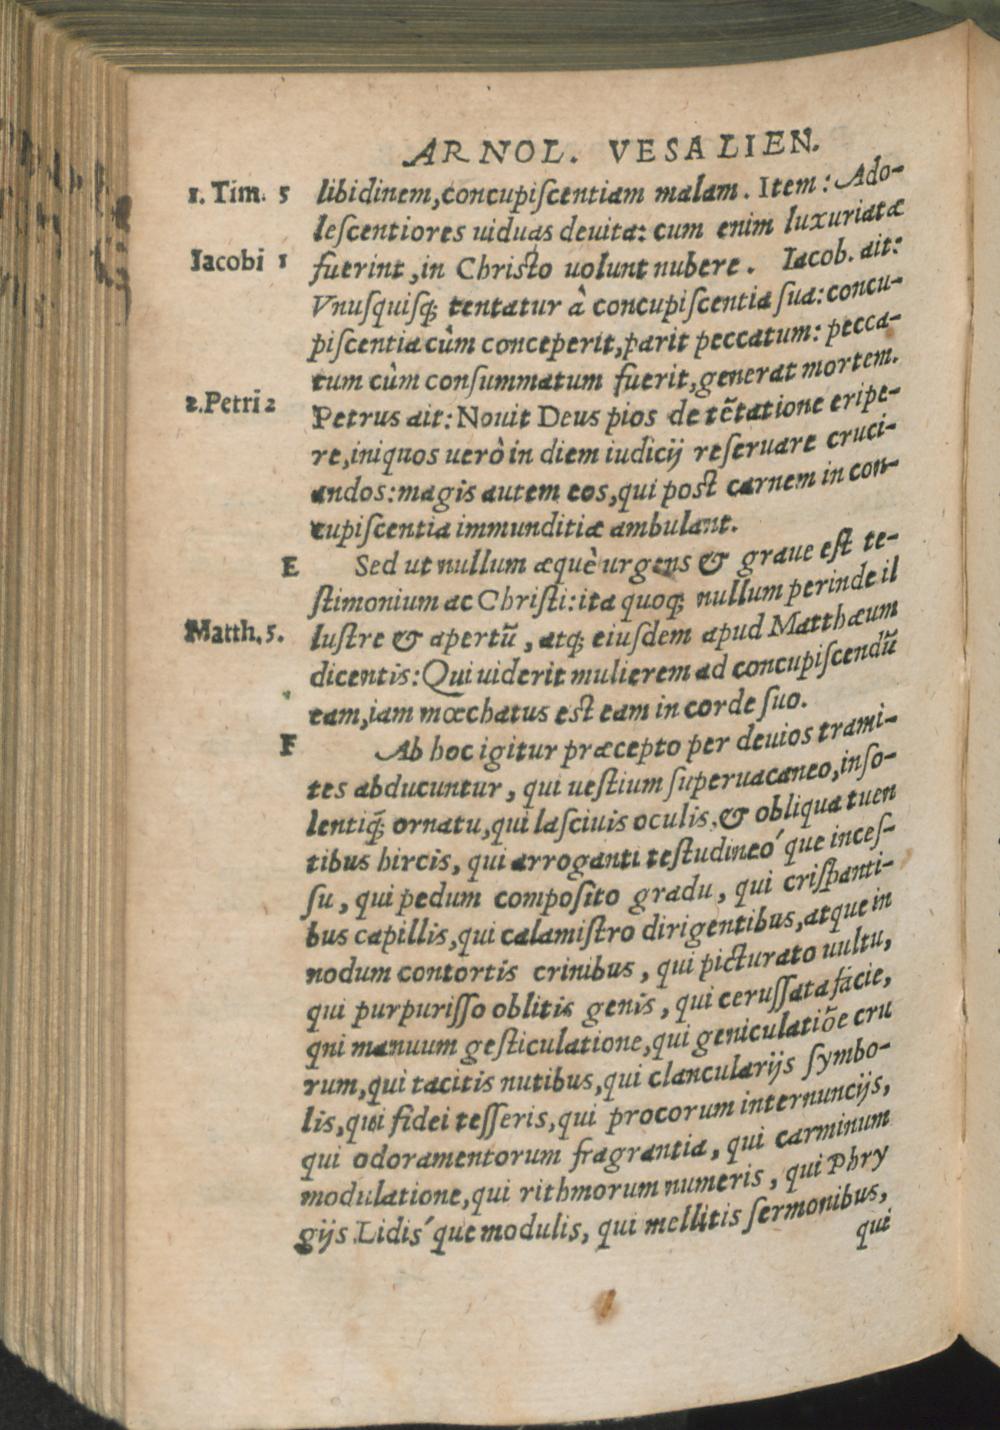 ARNOL. VESALIEN.
1. Tim. 5 libidinem, concupiſcentiam malam. Item: Ado-
leſcentiores uiduas deuita: cum enim luxuriatæ
Iacobi 1 fuerint, in Christo uolunt nubere. Iacob. ait:
Vnuſquiſq; tentatur à concupiſcentia ſua: concu-
piſcentia cùm conceperit, parit peccatum: pecca-
tum cùm conſummatum fuerit, generat mortem.
2. Petri 2 Petrus ait: Nouit Deus pios de tẽtatione eripe-
re, iniquos uerò in diem iudicij reſeruare cruci-
andos: magis autem eos, qui post carnem in con-
cupiſcentia immunditiæ ambulant.
E Sed ut nullum æquè urgens & graue eſt te-
ſtimonium ac Chriſti: ita quoq; nullum perinde il
Matth. 5. luſtre & apertũ, atq; eiuſdem apud Matthæum
dicentis: Qui uiderit mulierem ad concupiſcendũ
eam, iam mœchatus est eam in corde ſuo.
F Ab hoc igitur præcepto per deuios trami-
tes abducuntur, qui ueſtium ſuperuacaneo, inſo-
lentiq́; ornatu, qui laſciuis oculis, & obliqua tuen
tibus hircis, qui arroganti teſtudineó que inceſ-
ſu, qui pedum compoſito gradu, qui criſpanti-
bus capillis, qui calamiſtro dirigentibus, atque in
nodum contortis crinibus, qui picturato uultu,
qui purpuriſſo oblitis genis, qui ceruſſata facie,
qni manuum geſticulatione, qui geniculatiõe cru
rum, qui tacitis nutibus, qui clancularijs ſymbo-
lis, qui fidei teſſeris, qui procorum internuncijs,
qui odoramentorum fragrantia, qui carminum
modulatione, qui rithmorum numeris, qui Phry
gijs Lidiś que modulis, qui mellitis ſermonibus,
qui